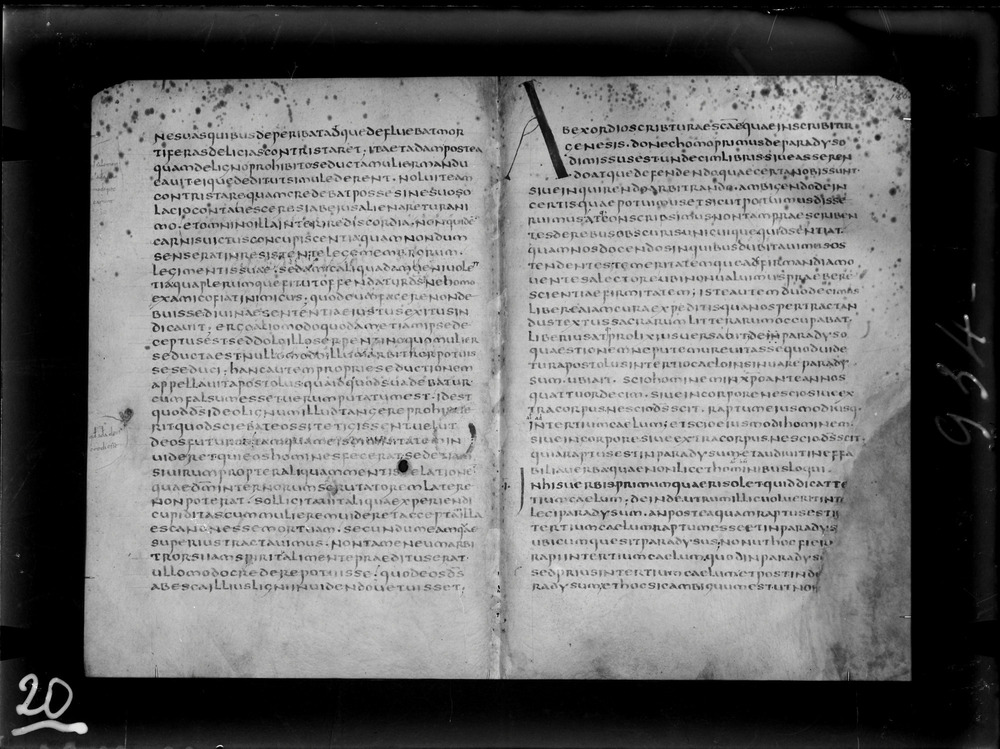 NESUASQUIBUSDEPERIBATADQUEDEFLUEBATMOR
TIFERASDELICIASCONTRISTARET; ITAETADAMPOSTEA
QUAMDELIGNOPROHIBITOSEDUCTAMULIERMANDU
CAUITEIQUEDEDITUTSIMULEDERENT· NOLUITEAM
CONTRISTAREQUAMCREDEBATPOSSESINESUOSO
LACIOCONTAUESCERESIABEIUSALIENARETURANI
MO· ETOMNINOILLAINTERIREDISCORDIA· NONQUIDE
CARNISUICTUSCONCUPISCENTIAQUAMNONDUM
SENSERATINRESISTENTELEGEMEMBRORUM·
LEGIMENTISSUAE· SEDAMICALIQUADAMBENIUOLEN
TIAQUAPLERUMQUEFITUTOFFENDATURDSNEHOMO
EXAMICOFIATINIMICUS· QUODEUMFACERENONDE
BUISSEDIUINAESENTENTIAEIUSTUSEXITUSIN
DICAUIT; ERGOALIOMODOQUODAMETIAMIPSEDE
CEPTUSESTSEDDOLOILLOSERPENTINOQUOMULIER
SEDUCTAESTNULLOMODOILLUMARBITRORPOTUIS
SESEDUCI; HANCAUTEMPROPRIESEDUCTIONEM
APPELLAUITAPOSTOLUSQUAIDQUODSUADEBATUR
CUMFALSUMESSETUERUMPUTATUMEST· IDEST
QUODDSIDEOLIGNUMILLUDTANGEREPROHIBUE
RITQUODSCIEBATEOSSITETIGISSENTUELUT
DEOSFUTUROSTAMQUAMEISDIUINITATEMIN
UIDERETQUIEOSHOMINESFECERAT· SEDETIAM
SIUIRUMPROPTERALIQUAMMENTISELATIONE
QUAEDMINTERNORUMSCRUTATOREMLATERE
NONPOTERAT· SOLLICITAUITALIQUAEXPERIENDI
CUPIDITASCUMMULIEREMUIDERETACCEPTAILLA
ESCANONESSEMORTUAM· SECUNDUMEAMQAE
SUPERIUSTRACTAUIMUS· NONTAMENEUMARBI
TRORSIIAMSPIRITALIMENTEPRAEDITUSERAT·
ULLOMODOCREDEREPOTUISSE· QUODEOSDS
ABESCAILLIUSLIGNIINUIDENDOUETUISSET·
ABEXORDIOSCRIBTURAESCAEQUAEINSCRIBITUR
GENESIS· DONECHOMOPRIMUSDEPARADYSO
DIMISSUSESTUNDECIMLIBRISSIUEASSEREN
DOATQUEDEFENDENDOQUAECERTANOBISSUNT·
SIUEINQUIRENDOARBITRANDO· AMBIGENDODEIN
CERTISQUAEPOTUIMUSETSICUTPOTUIMUSDISSE
RUIMUSATQCONSCRIBSIMUSNONTAMPRAESCRIBEN
TESDEREBUSOBSCURISUNICUIQUEQUIDSENTIAT·
QUAMNOSDOCENDOSINQUIBUSDUBITAUIMUSOS
TENDENTESTEMERITATEMQUEADFIRMANDIAMO
UENTESALECTOREUBINONUALUIMUSPRAEBERE
SCIENTIAEFIRMITATEM; ISTEAUTEMDUODECIMUS
LIBEREAIAMCURAEXPEDITISQUANOSPERTRACTAN
DUSTEXTUSSACRARUMLITTERARUMOCCUPABAT·
LIBERIUSATQPROLIXIUSUERSABITDEINPARADYSO
QUAESTIONEMNEPUTEMUREUITASSEQUODUIDE
TURAPOSTOLUSINTERTIOCAELOINSINUAREPARADY
SUM· UBIAIT· SCIOHOMINEMINXPOANTEANNOS
QUATTUORDECIM· SIUEINCORPORENESCIOSIUEEX
TRACORPUSNESCIODSSCIT· RAPTUMEIUSMODIUSQ·
INTERTIUMCAELUM; ETSCIOEIUSMODIHOMINEM
SIUEINCORPORESIUEEXTRACORPUSNESCIODSSCIT·
QUIARAPTUSESTINPARADYSUMETAUDIUITINEFFA
BILIAUERBAQUAENONLICETHOMINIBUSLOQUI·
INHISUERBISPRIMUMQUAERISOLETQUIDDICATTE
TIUMCAELUM· DEINDEUTRUMILLICUOLUERITINTE
LEGIPARADYSUM· ANPOSTEAQUAMRAPTUSESTIN
TERTIUMCAELUMRAPTUMESSEETINPARADYS
UBICUMQUESITPARADYSUS· NONUTHOCFIER
RAPIINTERTIUMCAELUMQUODINPARADYS
SEDPRIUSINTERTIUMCAELUMETPOSTINDE
RADYSUMETHOCSICAMBIGUUMESTUTNON
984
20